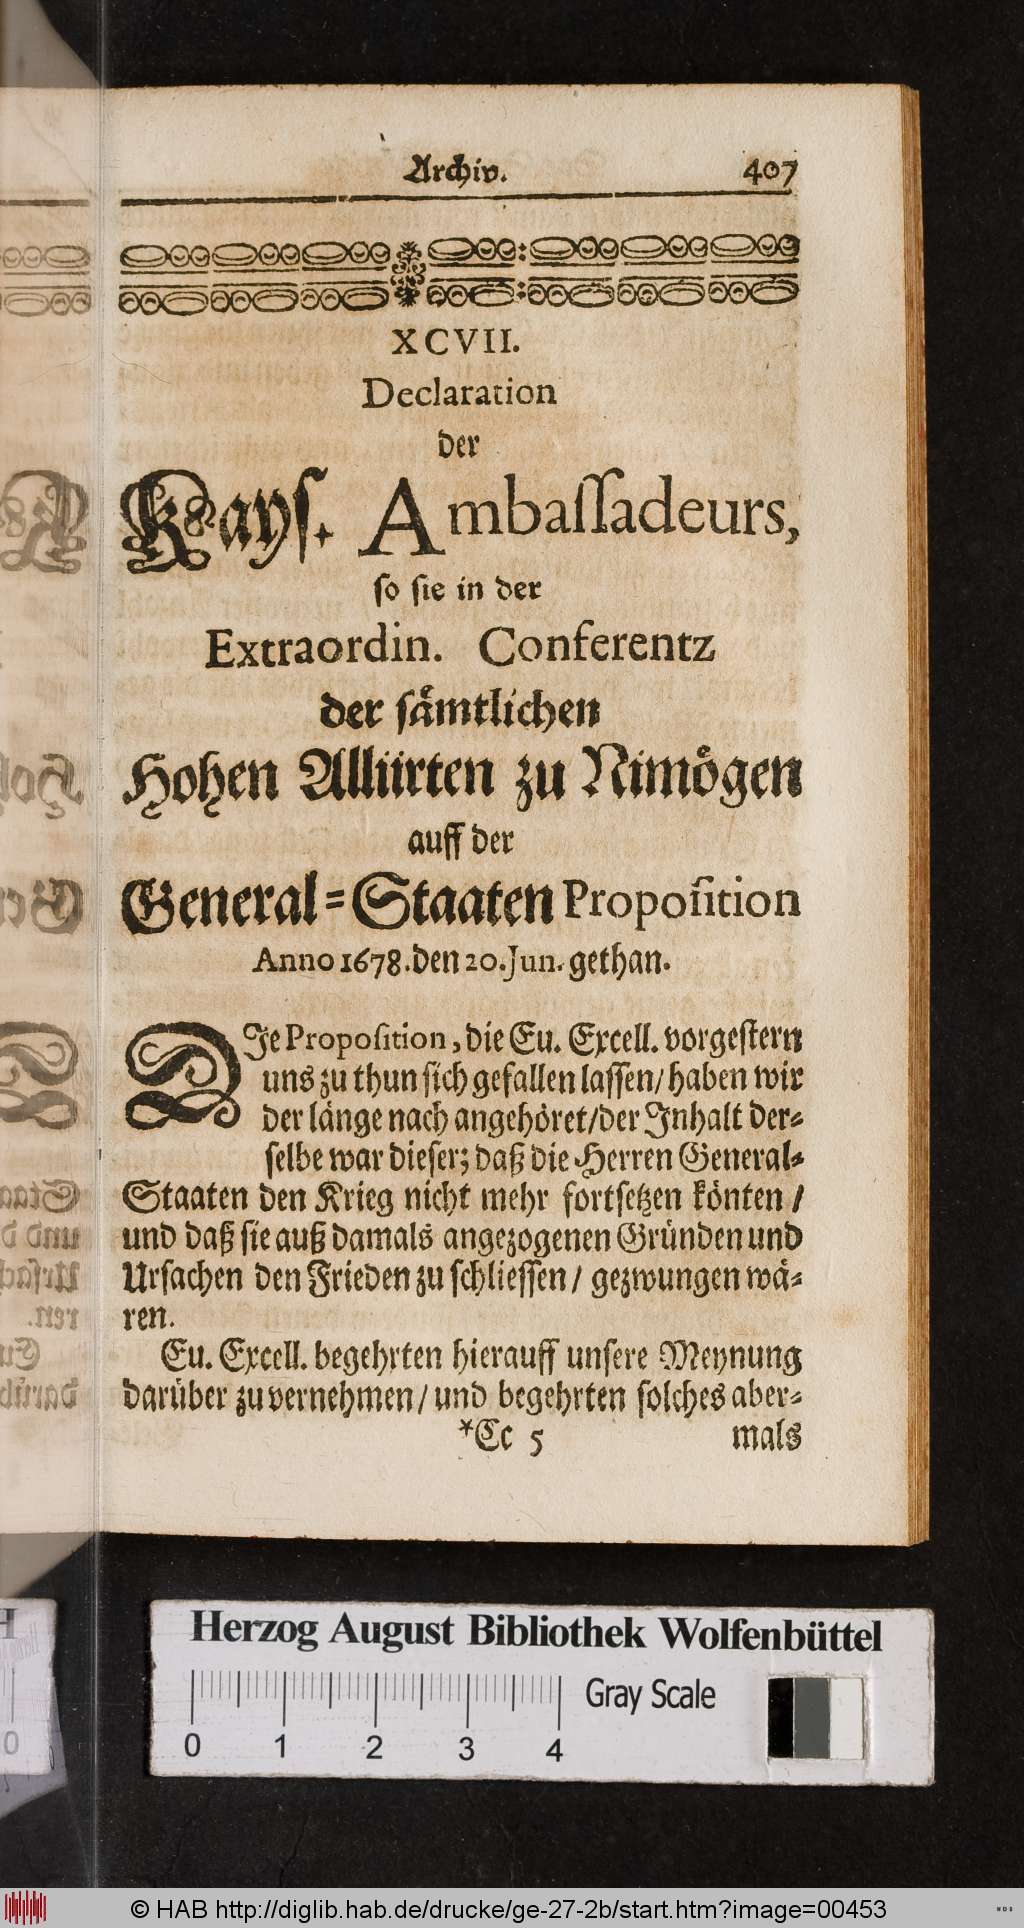 Archiv. 407
XCVII.
Declaration
der
Kayſ. Ambaſſadeurs,
ſo ſie in der
Extraordin. Conferentz
der ſaͤmtlichen
Hohen Alliirten zu Nimoͤgen
auff der
General-Staaten Propoſition
Anno 1678. den 20. Jun. gethan.
DJe Propoſition, die Eu. Excell. vorgeſtern
uns zu thun ſich gefallen laſſen/ haben wir
der länge nach angehöret/der Jnhalt der-
ſelbe war dieſer; daß die Herren General-
Staaten den Krieg nicht mehr fortſetzen könten /
und daß ſie auß damals angezogenen Gründen und
Urſachen den Frieden zu ſchlieſſen / gezwungen wä-
ren.
Eu. Excell. begehrten hierauff unſere Meynung
darüber zu vernehmen/ und begehrten ſolches aber-
*Cc 5 mals
Herzog August Bibliothek Wolfenbüttel
Gray Scale
0 1 2 3 4
© HAB http://diglib.hab.de/drucke/ge-27-2b/start.htm?image=00453